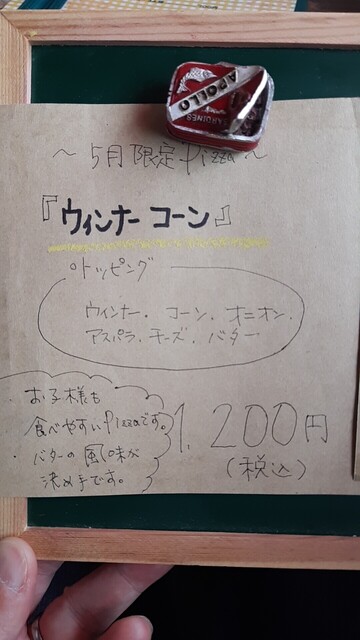 APOLLO
SARDINES
～5月限定Pizza～
『ウィンナー コーン』
トッピング
ウィンナー、コーン、オニオン、
アスパラ、チーズ、バター
お子様も
食べやすいPizzaです。
・バターの風味が
決め手です。
1,200円
(税込)